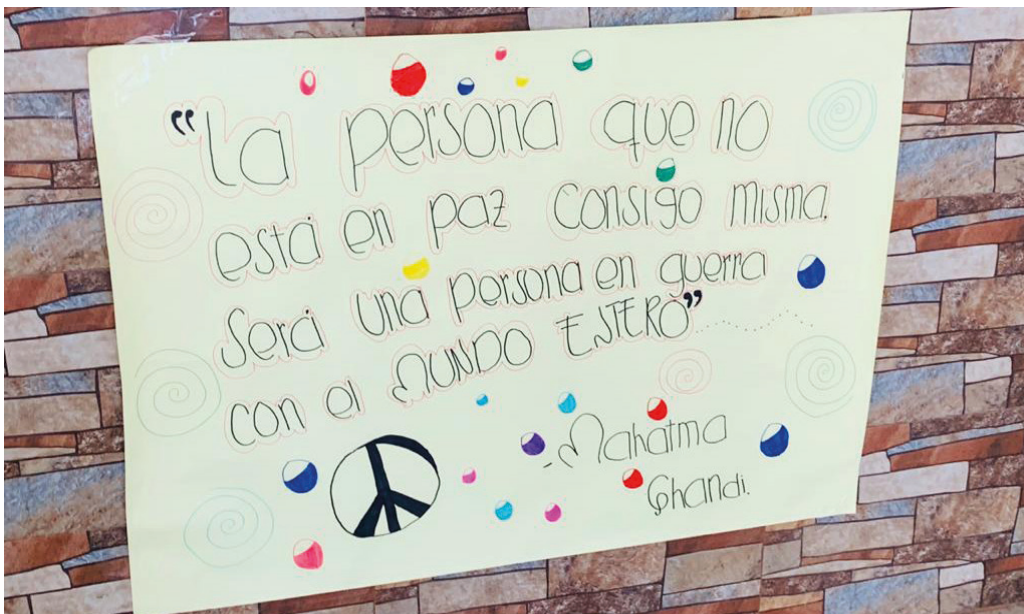 “La persona que no
está en paz consigo misma.
Será una persona en guerra
con el MUNDO ESTERO”
-Mahatma
Ghandi.